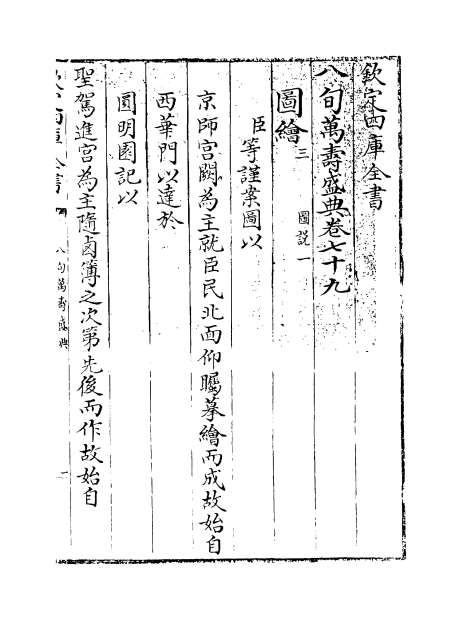 欽定四庫全書
八旬萬壽盛典卷七十九
圖繪三 圖說一
臣等謹案圖以
京師宮闕為主就臣民北面仰矚摹繪而成故始自
西華門以達於
圓明園記以
聖駕進宮為主隨鹵簿之次第先後而作故始自
欽定四庫全書 八旬萬壽盛典 一